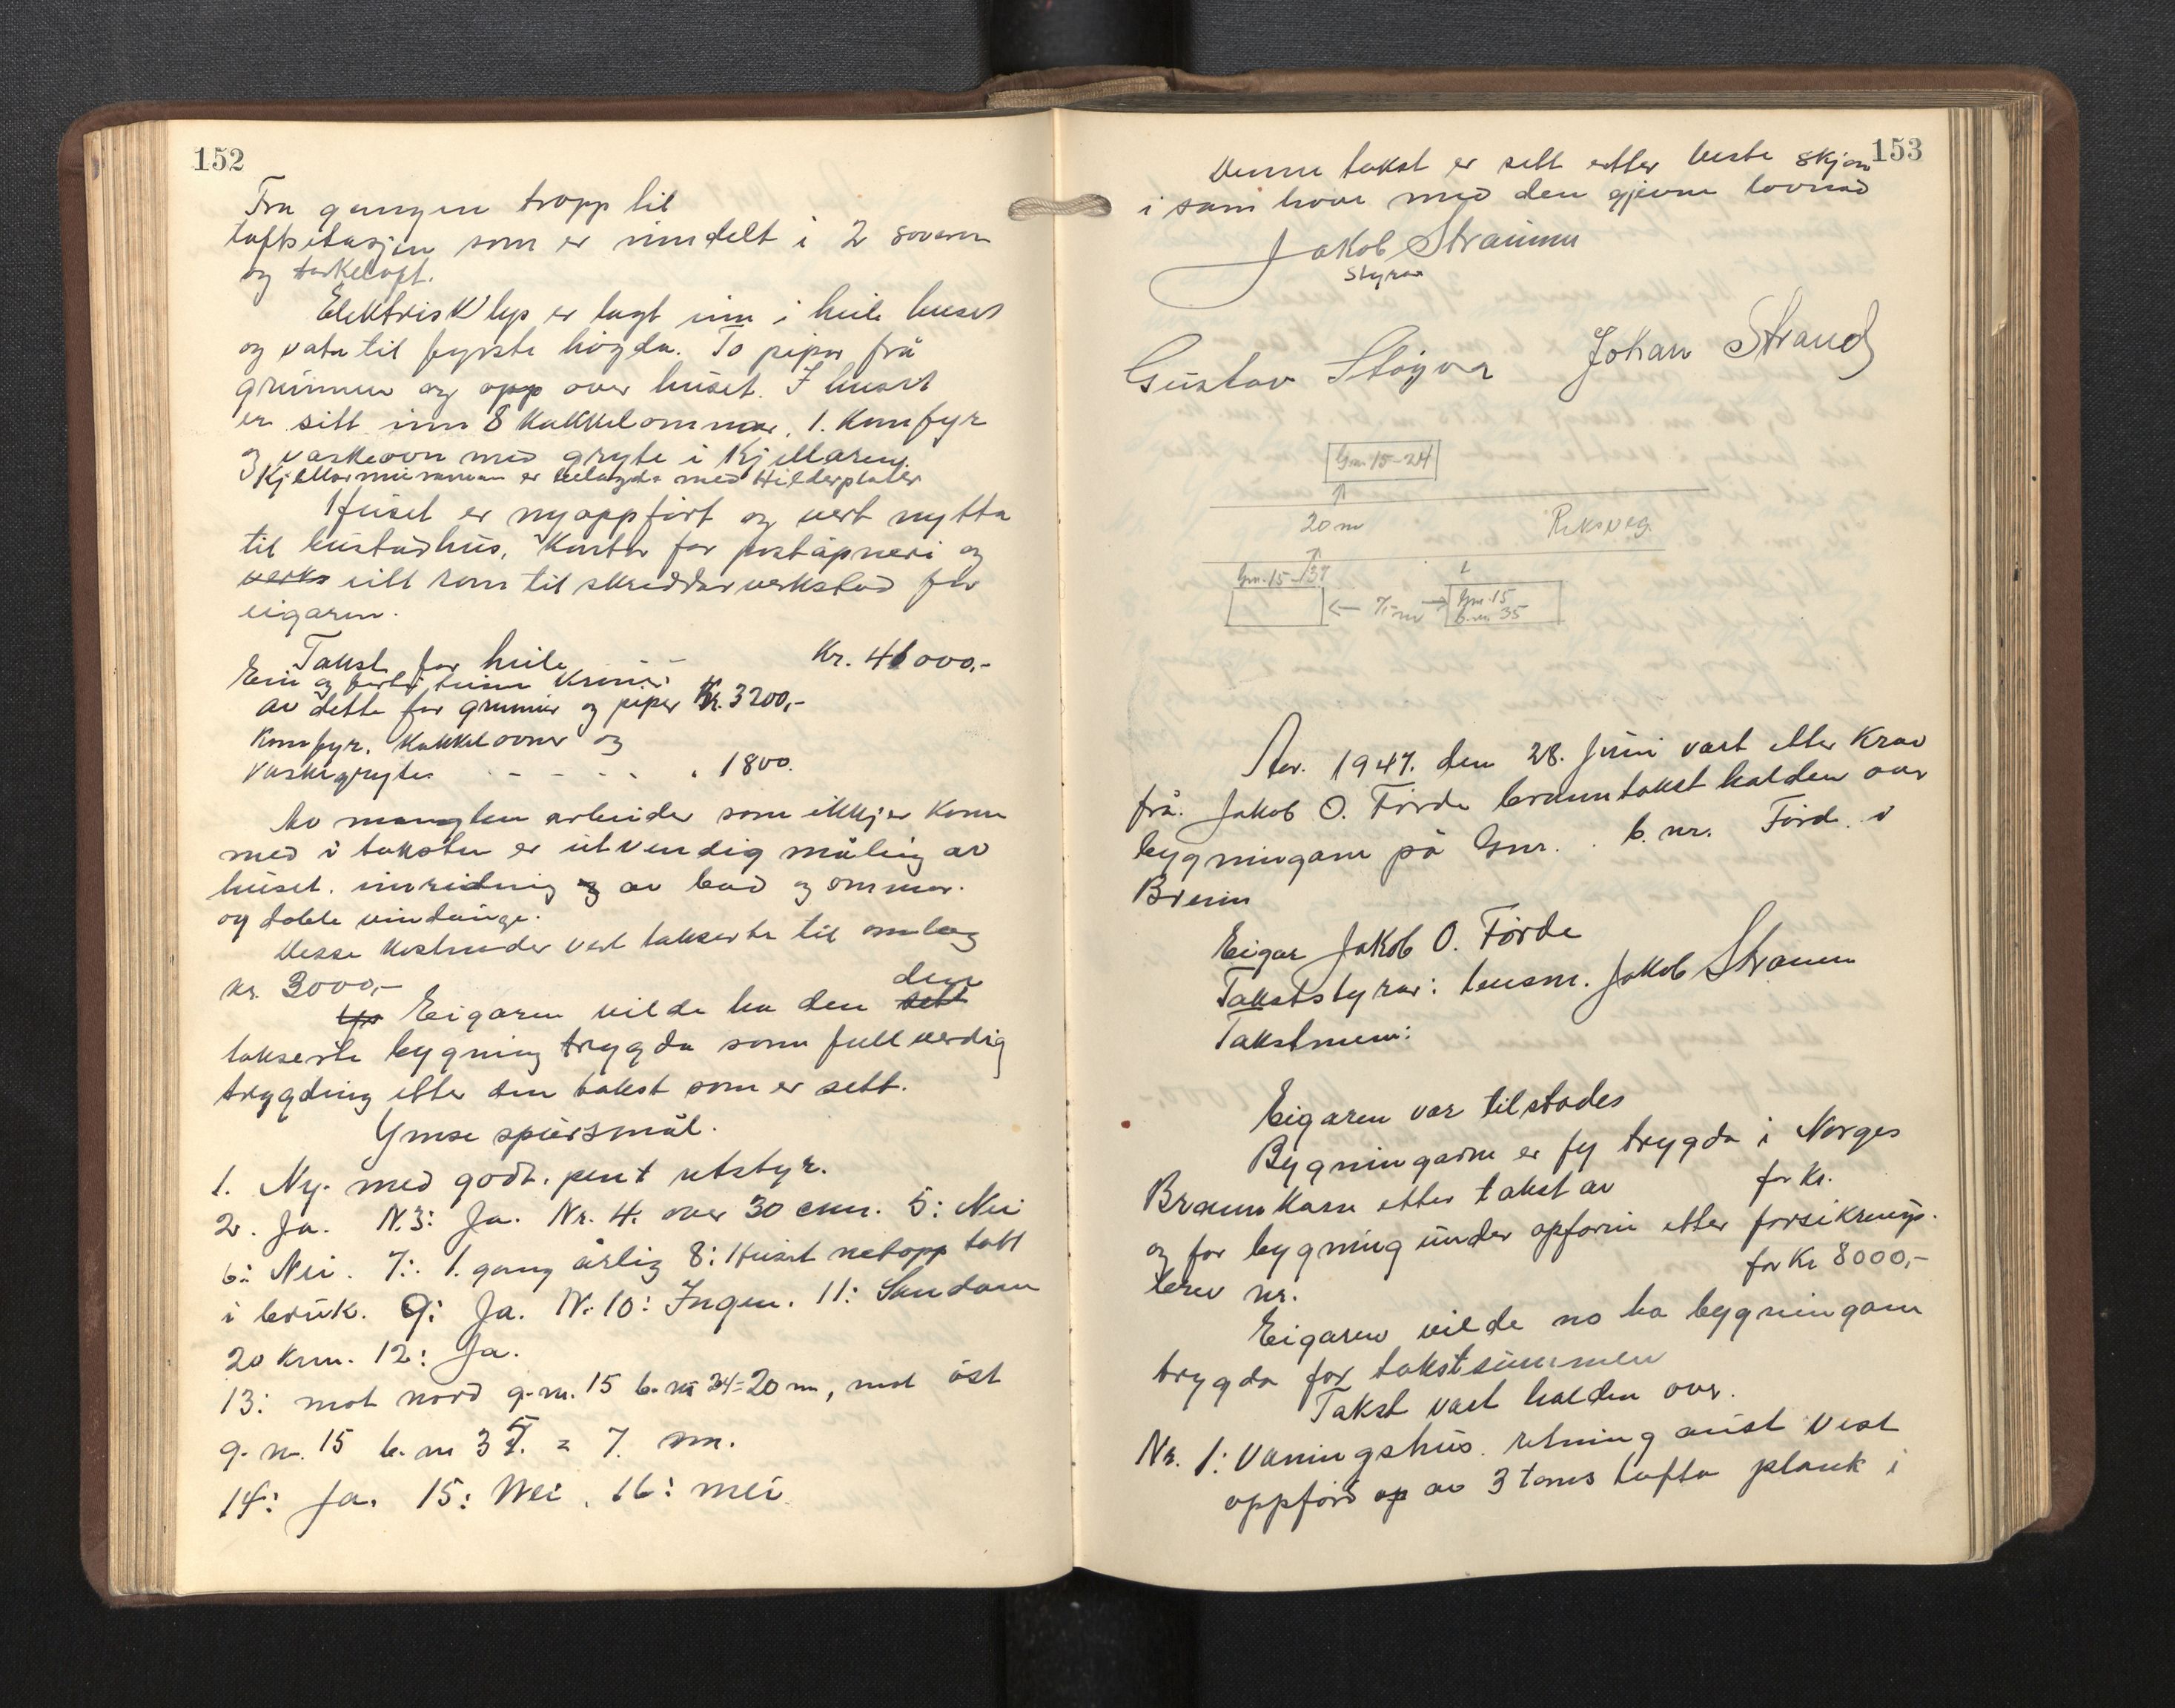 152
Fra gangen tropp til
loftsetasjen som er inndelt i 2 soverom
og tørkeloft.
Elektrisk lys er lagt inn i heile huset
og vatn til fyrste høgda. To pipor frå
grunnen og opp over huset. I huset
er sett inn 8 kakkelommnar, 1. komfyr
og vaskeovn med gryte i kjellaren.
Kjellarmurane er belagde med Hilderplater
Huset er nyoppført og vert nytta
til bustadhus, kontor for poståpneri og
verks eitt rom til skreddarverkstad for
eigaren.
Takst for heile Kr. 41000,-
Ein og førti tusen kroner
av dette for grunnur og piper Kr. 3200,-
Komfyr, kakkelovner og
vaskegryte - - - - 1800.
Av manglen arbeider som ikkje er kome
med i taksten er utvendig måling av
huset. innreidning og av bad og ommnar.
og doble vindauge.
Desse kostnader vert takserte til omlag
kr. 3000,-
Eigaren vilde ha den sett den
takserte bygning trygda som fullverdig
trygding etter den takst som er sett.
Ymse spursmål.
1. Ny. med godt. pent utstyr.
2. Ja. N.3: Ja. Nr. 4. over 30 cm. 5: Nei
6: Nei. 7: 1. gang årlig 8: Huset netopp tatt
i bruk. 9: Ja. N. 10: Ingen. 11: Sandane
20 km. 12: Ja.
13: mot nord g.nr. 15 b.nr 24=20 m, mot øst
g.nr. 15 b.nr 35. = 7. m.
14: Ja. 15: Nei. 16: nei
153
Denne takst er sett etter beste skjøn
i samhøve med den gjevne lovnad
Jakob Straume
Styrar
Gustav Støyva Johan Strand
Gnr. 15-24
20 m Riksveg.
Gnr. 15-137
← 7 m → Gnr. 15
b.nr. 35
Aar. 1947. den 28. juni vart etter krav
frå Jakob O. Førde branntakst halden over
bygningane på Gnr. b.nr. Førde i
Breim
Eigar Jakob O. Førde
Takststyrar: lensm. Jakob Straume
Takstmenn:
Eigaren var tilstades
Bygningarne er fy trygda i Norges
Brannkasse etter takst av for kr.
og for bygning under opføring etter forsikrings-
brev nr. for kr 8000,-
Eigaren vilde no ha bygningane
trygda for takstsummen
Takst vart halden over.
Nr. 1: Våningshus. retning aust vest
oppført op av 3 toms tufta plank i